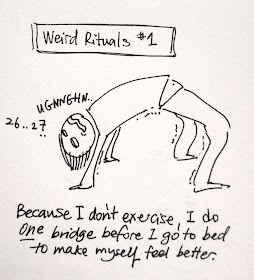 Weird Rituals #1
UGNNGHN..
26..27?
Because I don't exercise, I do
one bridge before I go to bed
to make myself feel better.